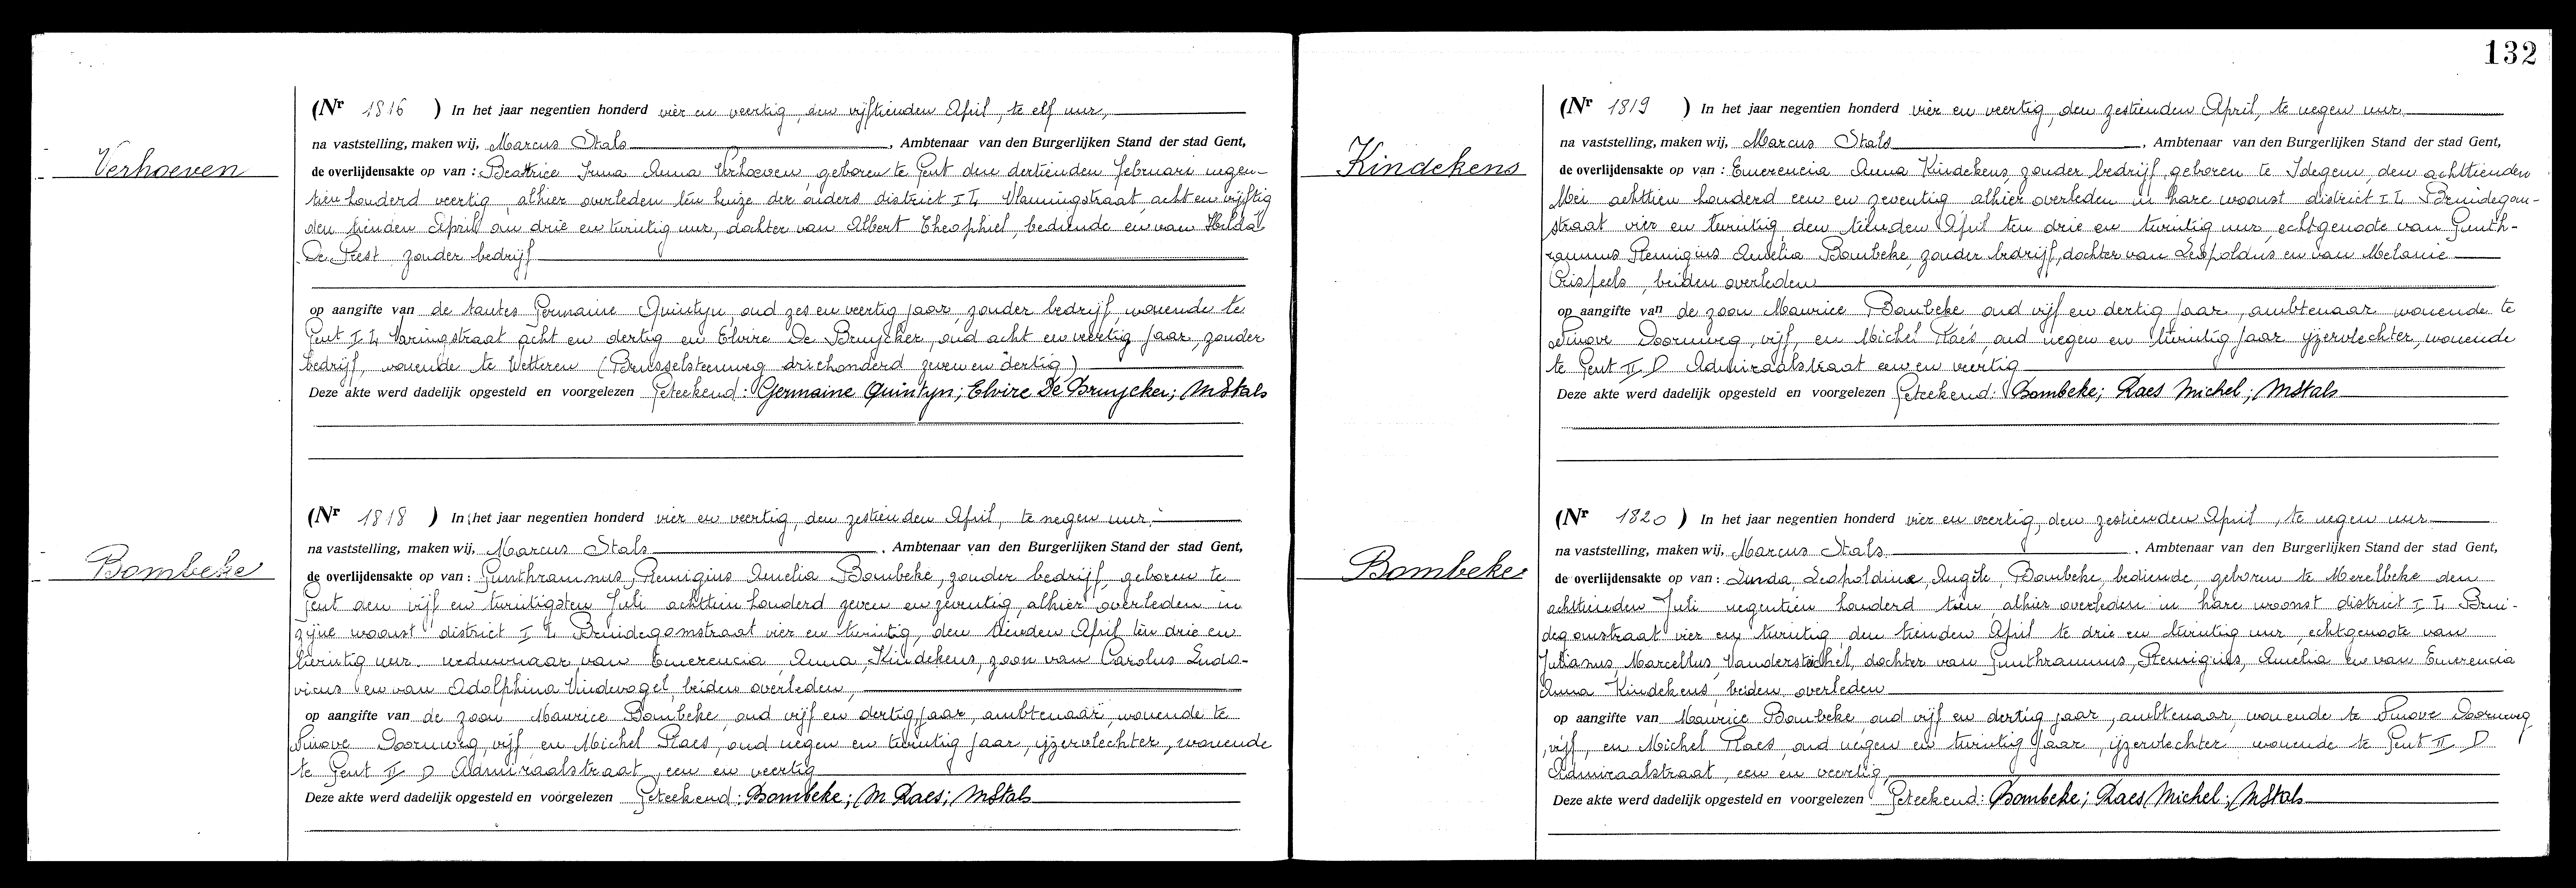 132
Verhoeven
(Nr 1816 ) In het jaar negentien honderd vier en veertig, den vijftienden April, te elf uur,
na vaststelling, maken wij, Marcus Stals, Ambtenaar van den Burgerlijken Stand der stad Gent,
de overlijdensakte op van : Beatrice Irma Anna Verhoeven, geboren te Gent den dertienden Februari negen-
tien honderd veertig, alhier overleden ten huize der ouders district I L acht en vijftig
den tienden April om drie en twintig uur, dochter van Albert Theophiel, bediende en van Hilda
De Pest zonder bedrijf
op aangifte van de tantes Germaine Quintyn, oud zes en veertig jaar, zonder bedrijf, wonende te
Gent I L acht en dertig en Elvire De Bruycker, oud acht en veertig jaar, zonder
bedrijf, wonende te Wetteren (Brusselsteenweg driehonderd zeven en dertig)
Deze akte werd dadelijk opgesteld en voorgelezen Geteekend: Germaine Quintyn; Elvire De Bruycker; MStals
Bombeke
(Nr 1818 ) In het jaar negentien honderd vier en veertig, den zestienden April, te negen uur.
na vaststelling, maken wij, Marcus Stals, Ambtenaar van den Burgerlijken Stand der stad Gent,
de overlijdensakte op van : Gunthramnus, Remigius Amelia Bombeke, zonder bedrijf, geboren te
Gent den vijf en twintigsten Juli achttien honderd zeven en zeventig, alhier overleden in
zijne woonst district I L Bruidegomstraat vier en twintig, den tienden April ten drie en
twintig uur. weduwnaar van Emerencia Anna, Kindekens, zoon van Carolus Ludo-
vicus en van Adolphina Vindevogel, beiden overleden,
op aangifte van de zoon Maurice Bombeke, oud vijf en dertig jaar, ambtenaar, wonende te
Ninove Doornweg, vijf en Michel Raes, oud negen en twintig jaar, ijzervlechter, wonende
te Gent II D Admiraalstraat, een en veertig
Deze akte werd dadelijk opgesteld en voorgelezen Geteekend: Bombeke; M Raes; MStals
Kindekens
(Nr 1819 ) In het jaar negentien honderd vier en veertig, den zestienden April, te negen uur
na vaststelling, maken wij, Marcus Stals, Ambtenaar van den Burgerlijken Stand der stad Gent,
de overlijdensakte op van : Emerencia Anna Kindekens, zonder bedrijf, geboren te Idegem, den achttienden
Mei achttien honderd een en zeventig alhier overleden in hare woonst district I L Bruidegom-
straat vier en twintig den tienden April ten drie en twintig uur, echtgenoote van Gunth-
ramnus Remigius Amelia Bombeke, zonder bedrijf, dochter van Leopoldus en van Melanie
Crispeels, beiden overleden
op aangifte van de zoon Maurice Bombeke oud vijf en dertig jaar, ambtenaar wonende te
Ninove Doornweg, vijf, en Michel Raes, oud negen en twintig jaar ijzervlechter, wonende
te Gent II D Admiraalstraat een en veertig
Deze akte werd dadelijk opgesteld en voorgelezen Geteekend: Bombeke; Raes Michel; MStals
Bombeke
(Nr 1820 ) In het jaar negentien honderd vier en veertig, den zestienden April, te negen uur
na vaststelling, maken wij, Marcus Stals, Ambtenaar van den Burgerlijken Stand der stad Gent,
de overlijdensakte op van : Linda, Leopoldine, Angèle, Bombeke, bediende, geboren te Merelbeke den
achttienden Juli negentien honderd tien, alhier overleden in hare woonst district I L Brui-
degomstraat vier en twintig den tienden April te drie en twintig uur, echtgenoote van
Julianus, Marcellus, Vanderstichel, dochter van Gunthramnus, Remigius, Amelia en van Emerencia
Anna Kindekens, beiden overleden
op aangifte van Maurice Bombeke oud vijf en dertig jaar, ambtenaar, wonende te Ninove Doornweg
vijf, en Michel Raes, oud negen en twintig jaar, ijzervlechter wonende te Gent II D
Admiraalstraat, een en veertig
Deze akte werd dadelijk opgesteld en voorgelezen Geteekend: Bombeke; Raes Michel; MStals